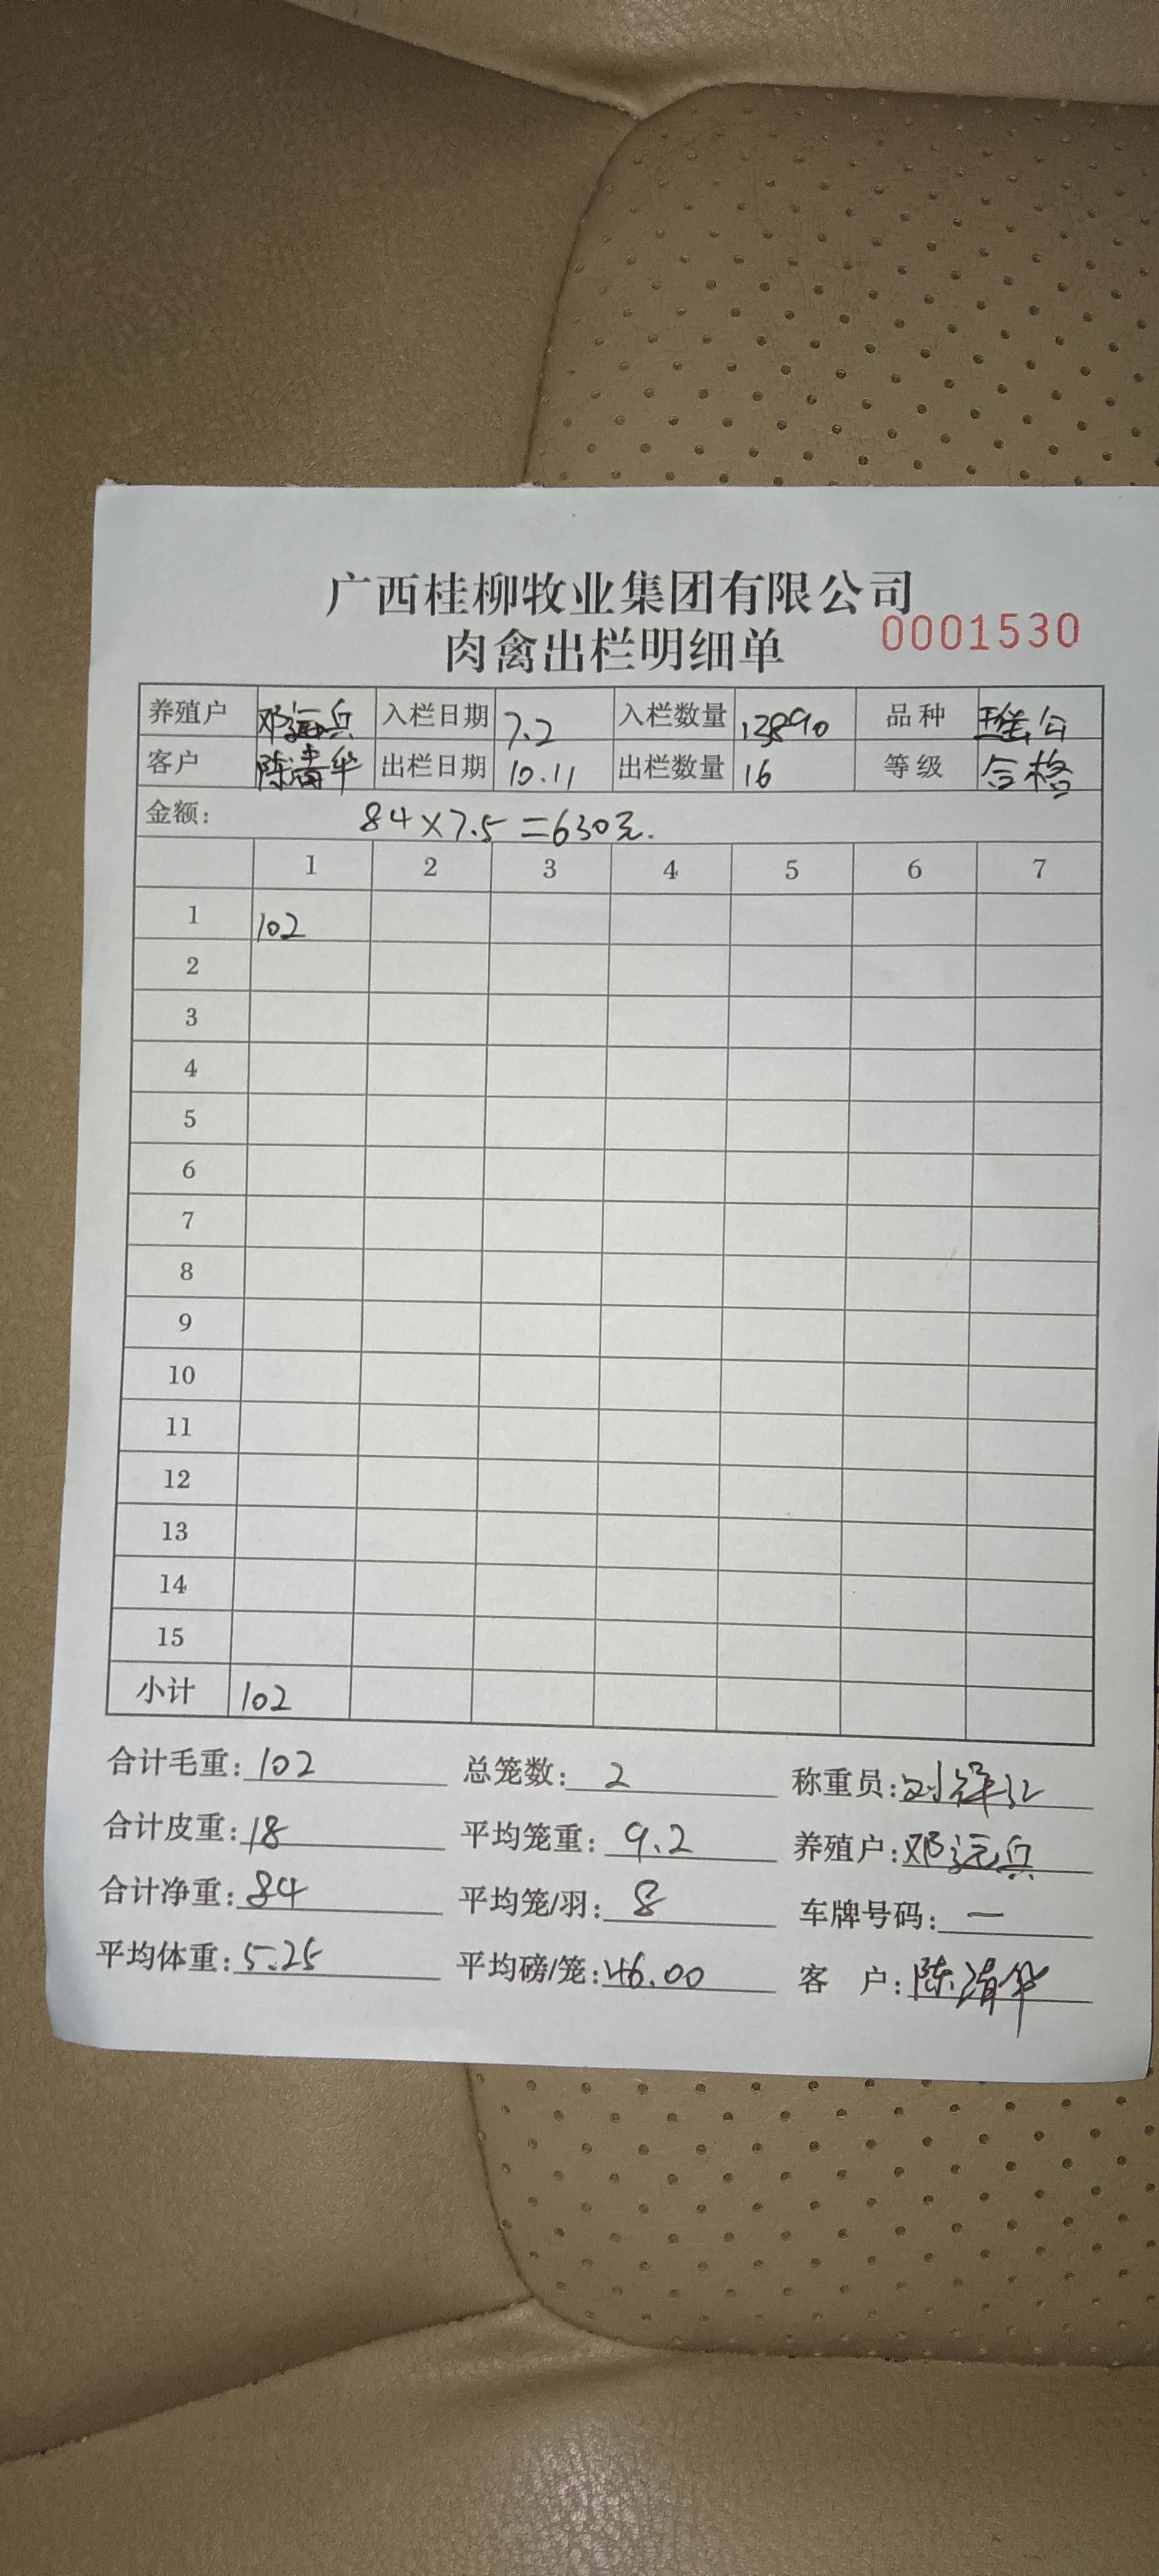 广西桂柳牧业集团有限公司
肉禽出栏明细单 0001530
养殖户 邓海兵 入栏日期 7.2 入栏数量 13890 品种 公
客户 陈清华 出栏日期 10.11 出栏数量 16 等级 合格
金额: 84×7.5=630元.
1 2 3 4 5 6 7
1 102
2
3
4
5
6
7
8
9
10
11
12
13
14
15
小计 102
合计毛重: 102 总笼数: 2 称重员: 刘
合计皮重: 18 平均笼重: 9.2 养殖户: 邓 兵
合计净重: 84 平均笼/羽: 8 车牌号码: 一
平均体重: 5.25 平均磅/笼: 46.00 客 户: 陈清华